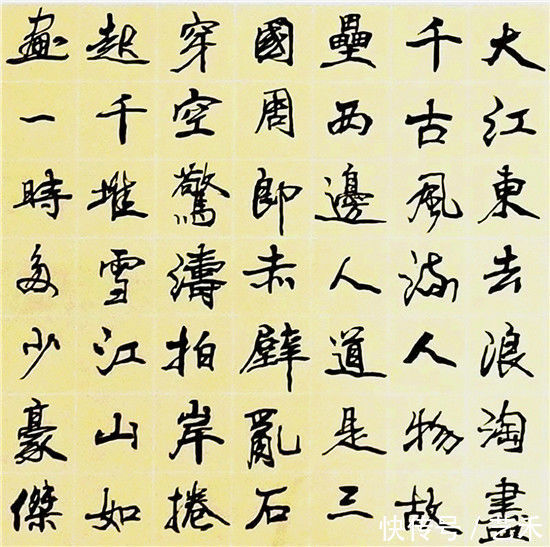 大江東去浪淘盡
千古風流人物故
壘西邊人道是三
國周郎赤壁亂石
穿空驚濤拍岸捲
起千堆雪江山如
畫一時多少豪傑
快传号/艺禾